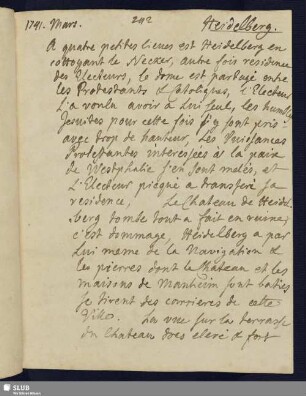 1741. Mars. 242 Heidelberg.
A quatre petites lieues est Heidelberg en
cottoyant le Necker, autre fois residence
des Electeurs, le dome est partagé entre
les Protestants & Catholiques, l'Electeur
l'a voulu avoir à lui seul, les humbles
Jesuites pour cette fois s'y sont pris
avec trop de hauteur, les Puissances
Protestantes interessées à la paix
de Westphalie s'en sont melés, et
l'Electeur piqué a transferé sa
residence, Le Chateau de Heidel
berg tombe tout a fait en ruine,
c'est dommage, Heidelberg a par
lui meme de la Navigation &
les pierres dont le Chateau et les
maisons de Manheim sont baties
se tirent des carrieres de cette
Ville. La vue sur la terrasse
du Chateau tres elevé & fort
SLUB
Wir führen Wissen.